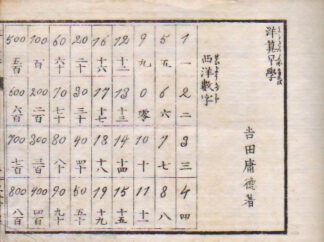 洋算早學
吉田庸徳著
西洋數字
1 一 2 二 3 三 4 四
5 五 6 六 7 七 8 八
9 九 0 零 10 十 11 十一
12 十二 13 十三 14 十四 15 十五
16 十六 17 十七 18 十八 19 十九
20 二十 30 三十 40 四十 50 五十
60 六十 70 七十 80 八十 90 九十
100 百 200 二百 300 三百 400 四百
500 五百 600 六百 700 七百 800 八百